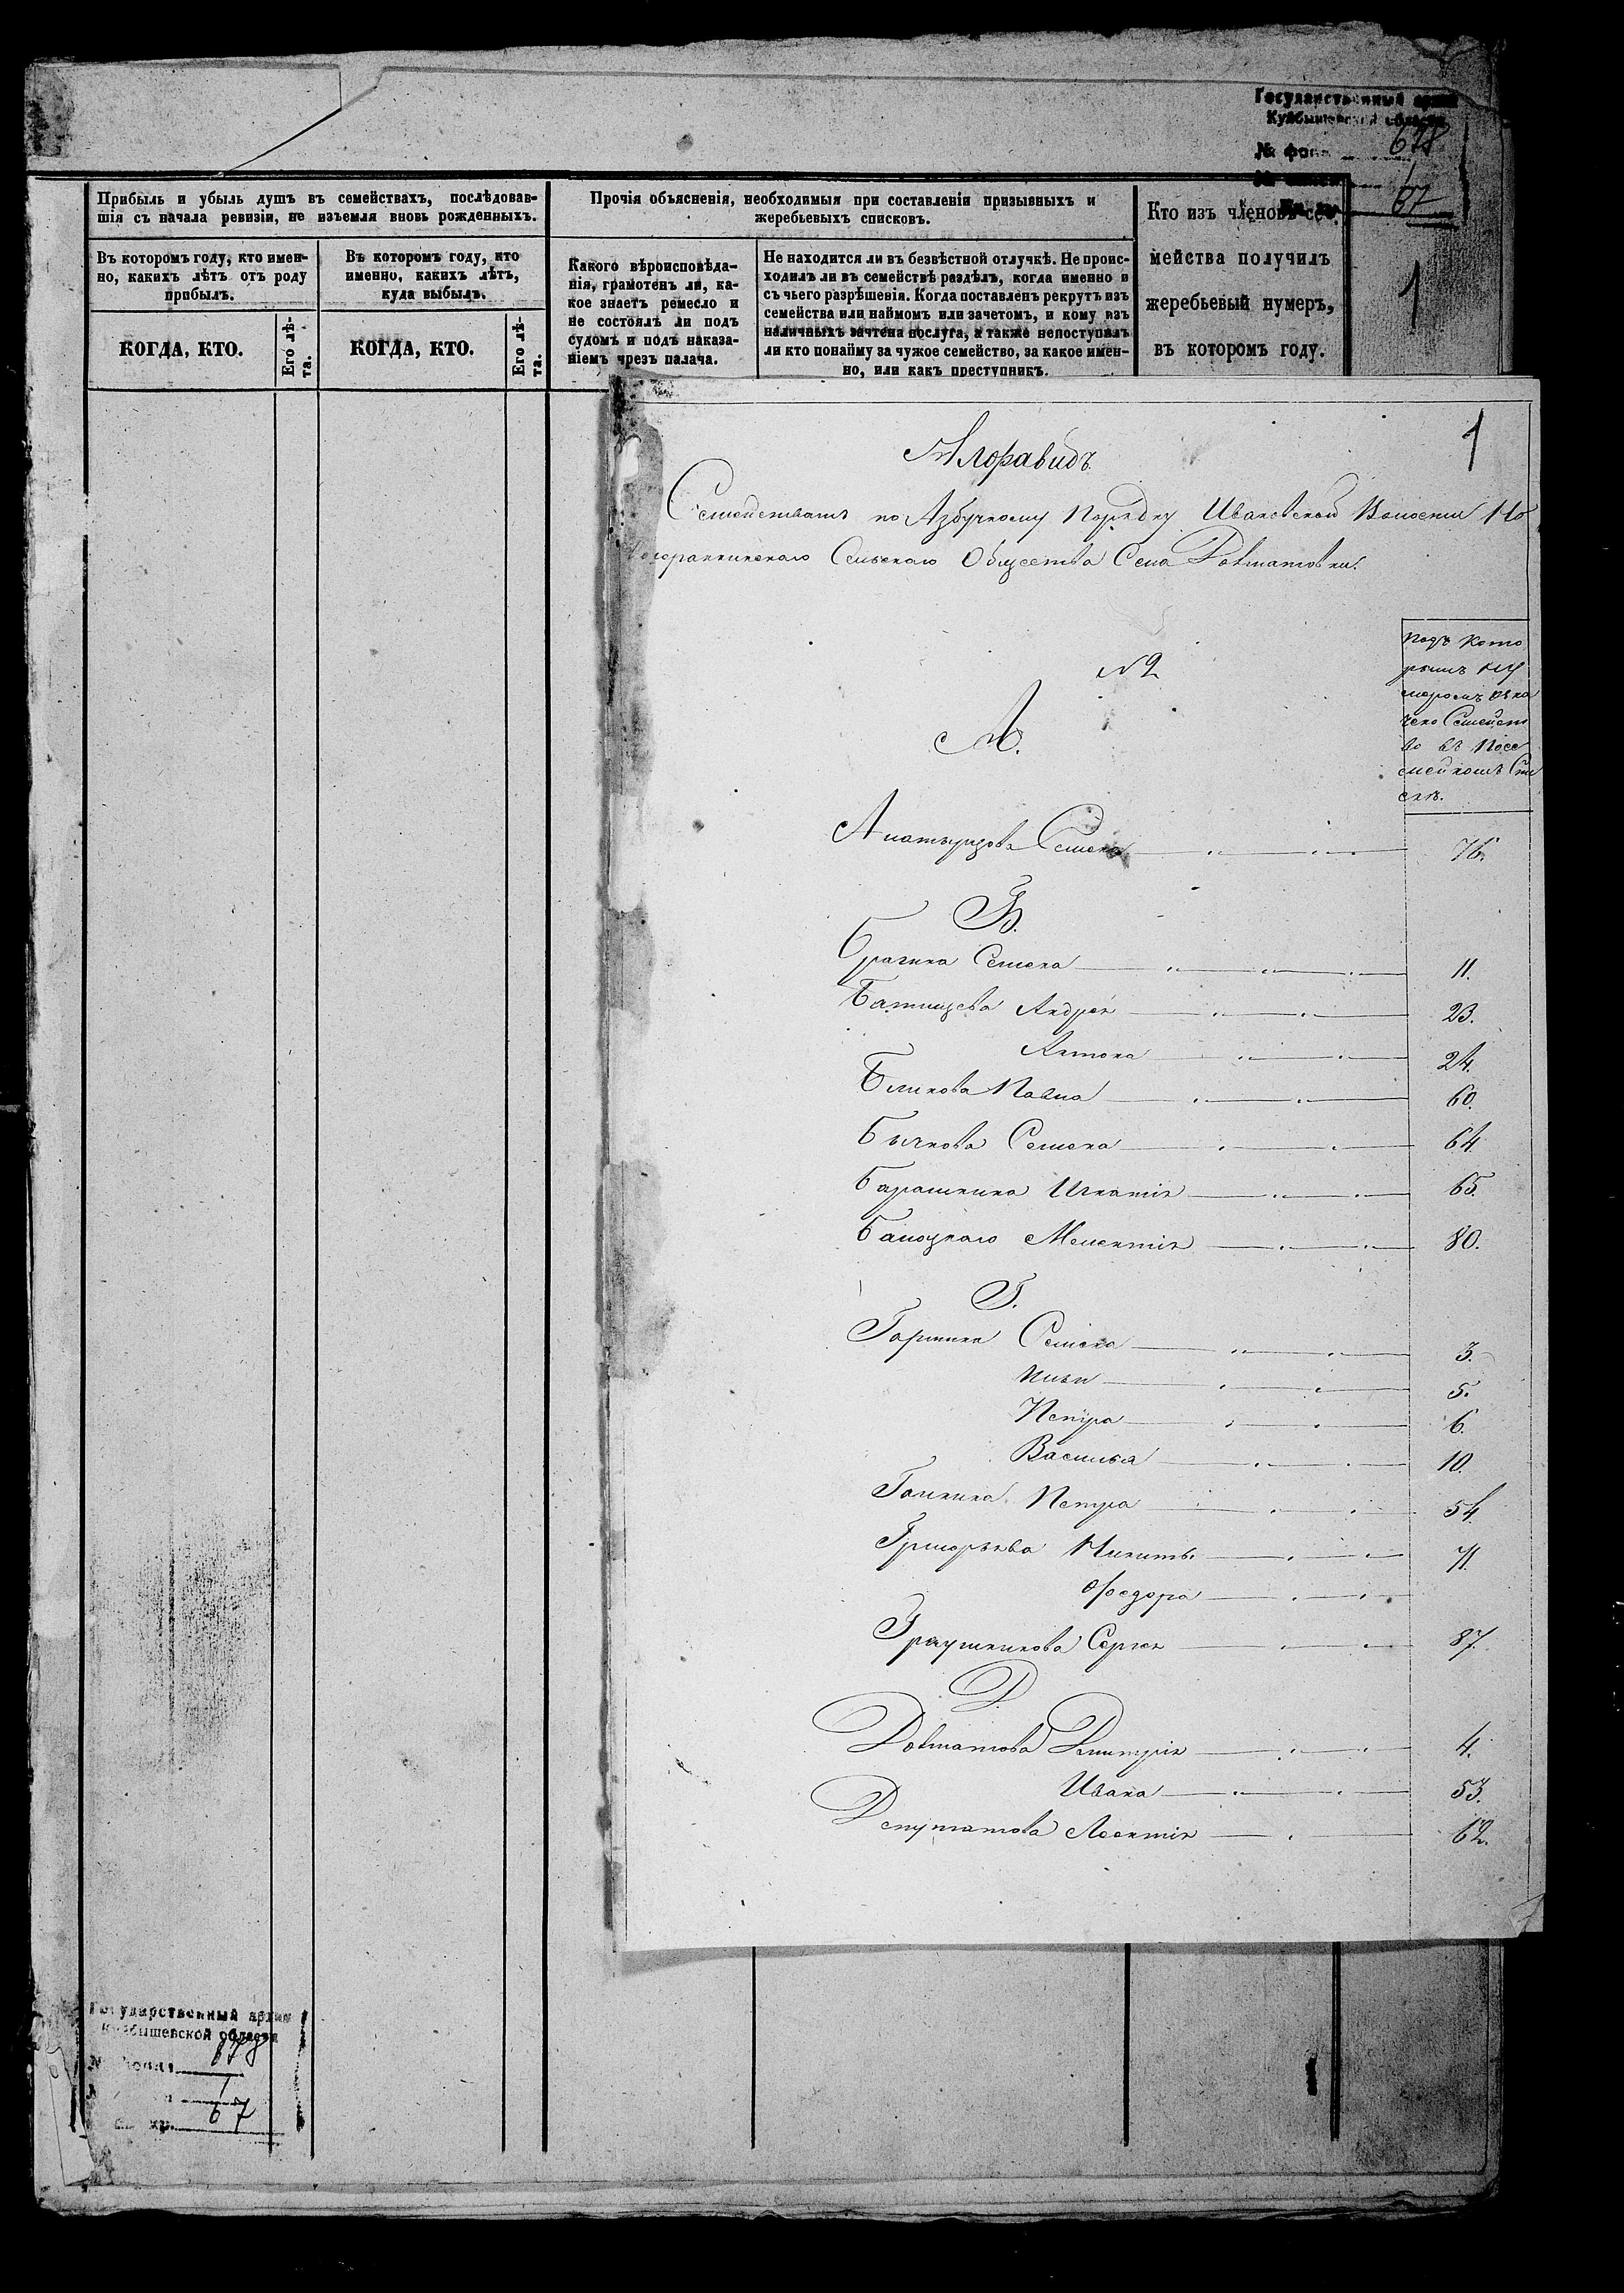 Государственный архив
Куйбышевской области
№ фон. 678
1
67
Прибыль и убыль душъ въ семействахъ, послѣдовав-
шія съ начала ревизіи, не изъемля вновь рожденныхъ.
Въ которомъ году, кто имен-
но, какихъ лѣтъ отъ роду
прибылъ.
КОГДА, КТО.
Его лѣ-
та.
Въ которомъ году, кто
именно, какихъ лѣтъ,
куда выбылъ.
КОГДА, КТО.
Его лѣ-
та.
Прочія объясненія, необходимыя при составленіи призывныхъ и
жеребьевыхъ списковъ.
Какого вѣроисповѣда-
нія, грамотенъ ли, ка-
кое знаетъ ремесло и
не состоялъ ли подъ
судомъ и подъ наказа-
ніемъ чрезъ палача.
Не находится ли въ безвѣстной отлучкѣ. Не проис-
ходилъ ли въ семействѣ раздѣлъ, когда именно и
съ чьего разрѣшенія. Когда поставленъ рекрутъ изъ
семейства или наймомъ или зачетомъ, и кому изъ
наличныхъ зачтена послуга, а также непоступилъ
ли кто понайму за чужое семейство, за какое имен-
но, или какъ преступникъ.
Кто изъ членовъ се-
мейства получилъ
жеребьевый нумеръ,
въ которомъ году.
1
1
Алфавидъ
Семействамъ по Азбучному Порядку Ивановской Волости Но
Сельскаго Общества Села Довматовки.
№ 2
Подъ Кото
рымъ ну
меромъ
чено Семейст
во въ Посе
мейномъ Спи
скѣ.
А.
Семена 76.
Б.
Брагина Семена 11.
Батищева Андрея 23.
Антона 24.
Бликова Павла 60.
Бычкова Семена 64.
Барашкина Игнатія 65.
Балоцкаго Мелентія 80.
Г.
Гаршина Семена 3.
Ильи 5.
Петра 6.
Василья 10.
Галкина Петра 54.
Григорьева Никиты 71.
Федора
Сергея 87.
Д.
Довматова Дмитрія 4.
Ивана 53.
Депутатова Леонтія 62.
Государственный архив
Куйбышевской области
№ фонда 678
1
ед. хр. 67